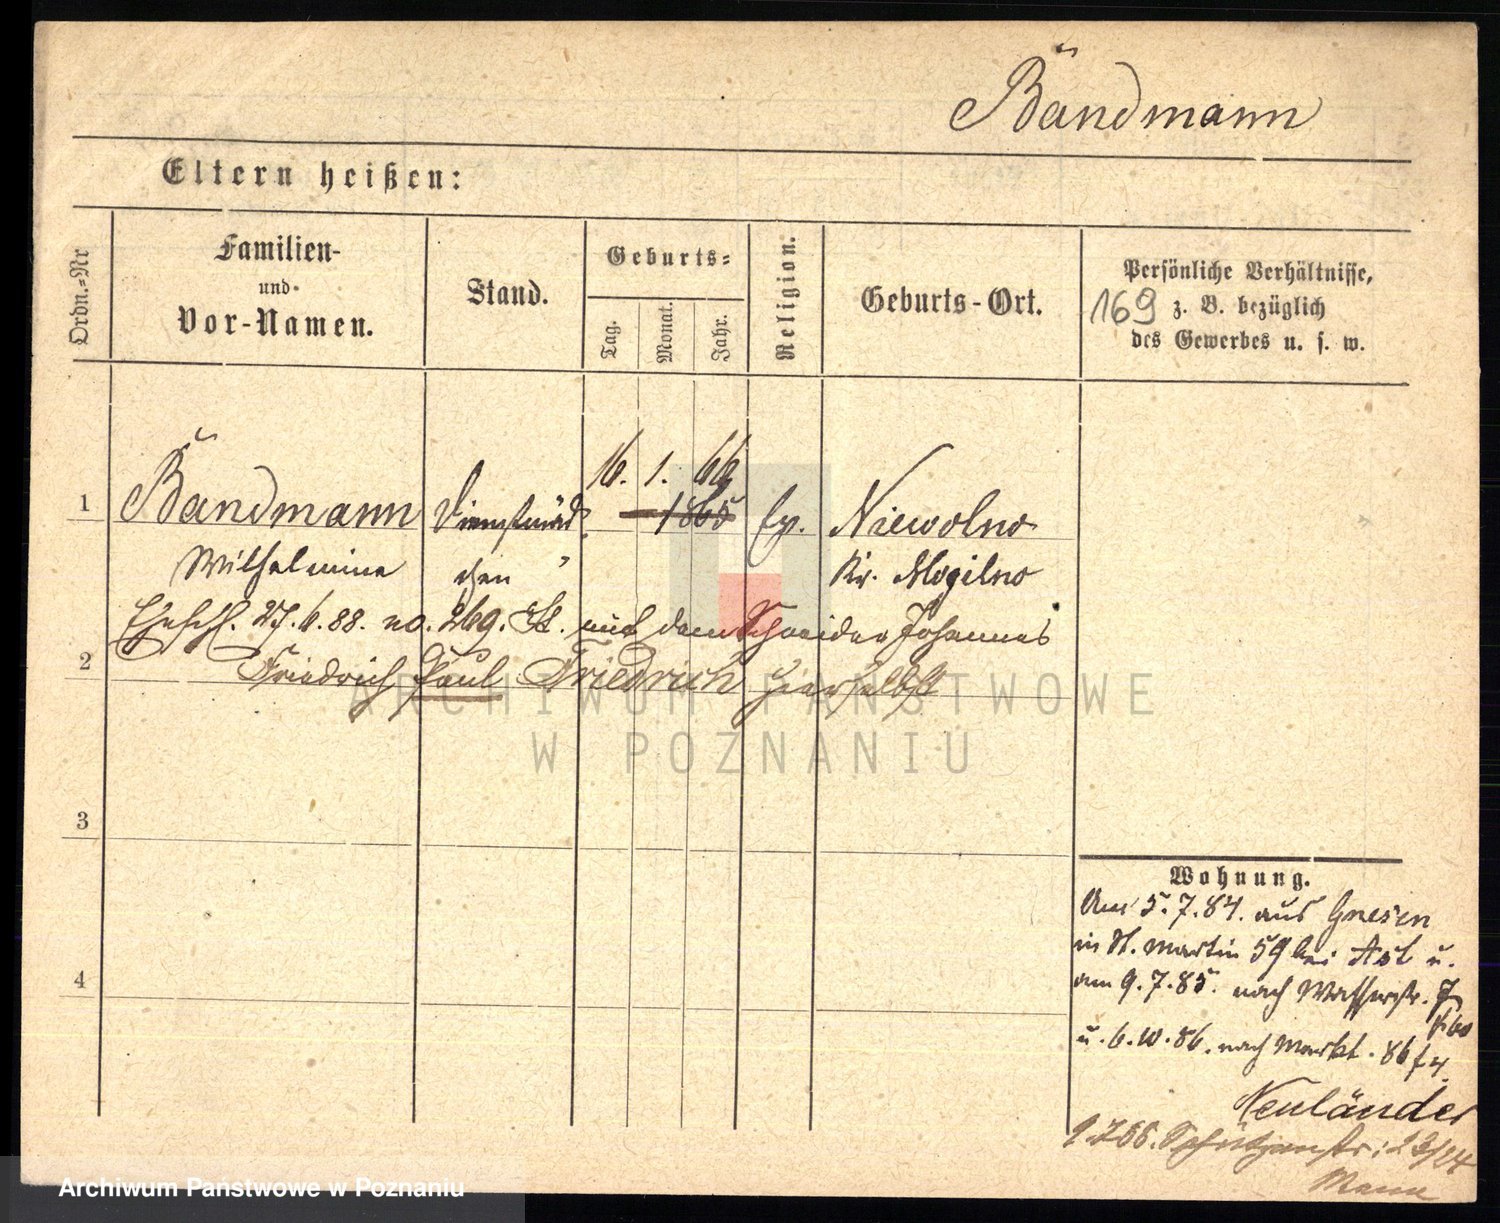 Bandmann
Eltern heißen:
Ordn.-Nr
Familien-
und
Vor-Namen.
Stand.
Geburts-
Tag.
Monat.
Jahr.
Religion.
Geburts-Ort.
Persönliche Verhältnisse,
169 z. B. bezüglich
des Gewerbes u. s. w.
16. 1. 66
1 Bandmann Dienstmäd 1865 Ev. Niewolno
Wilhelmine chen Kr. Mogilno
Eheschl. 27.6.88. no. 269. St. mit dem Schneider Johannes
2 Friedrich Paul Friedrich hierselbst
ARCHIWUM PAŃSTWOWE
W POZNANIU
3
4
Wohnung.
Am 5.7.84. aus Gnesen
in St. Martin 59 bei Ast u.
am 9.7.85. nach Wasserstr. 7
u. 6.10.86. nach Markt. 86 f 4
Neuländer
Schützenstr: 23/24
Mann
Archiwum Państwowe w Poznaniu